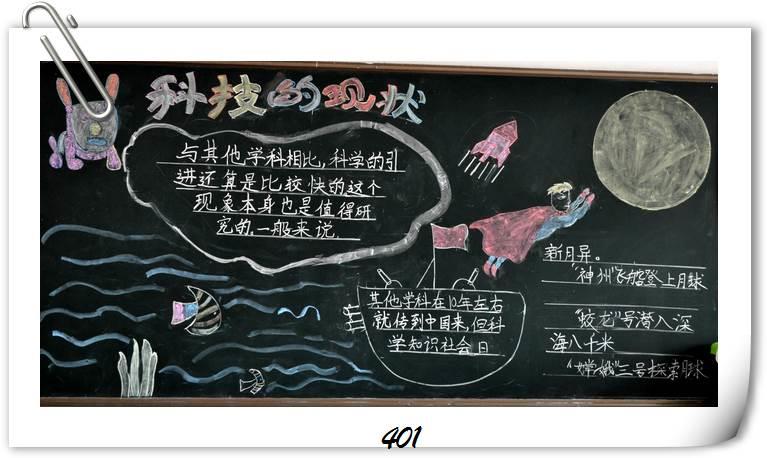 科技的现状
与其他学科相比,科学的引
进还算是比较快的这个
现象本身也是值得研
究的一般来说
其他学科在10年左右
就传到中国来,但科
学知识社会日
新月异。
"神州"飞船登上月球
"蛟龙"号潜入深
海八千米
"嫦娥"三号探索月球
401